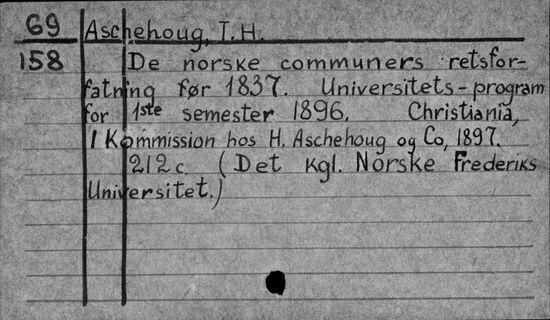 69 Aschehoug, T. H.
158 De norske communers retsfor-
fatning før 1837. Universitets-program
for 1ste semester 1896. Christiania,
I Kommission hos H. Aschehoug og Co, 1897.
212 c. (Det kgl. Norske Frederiks
Universitet.)